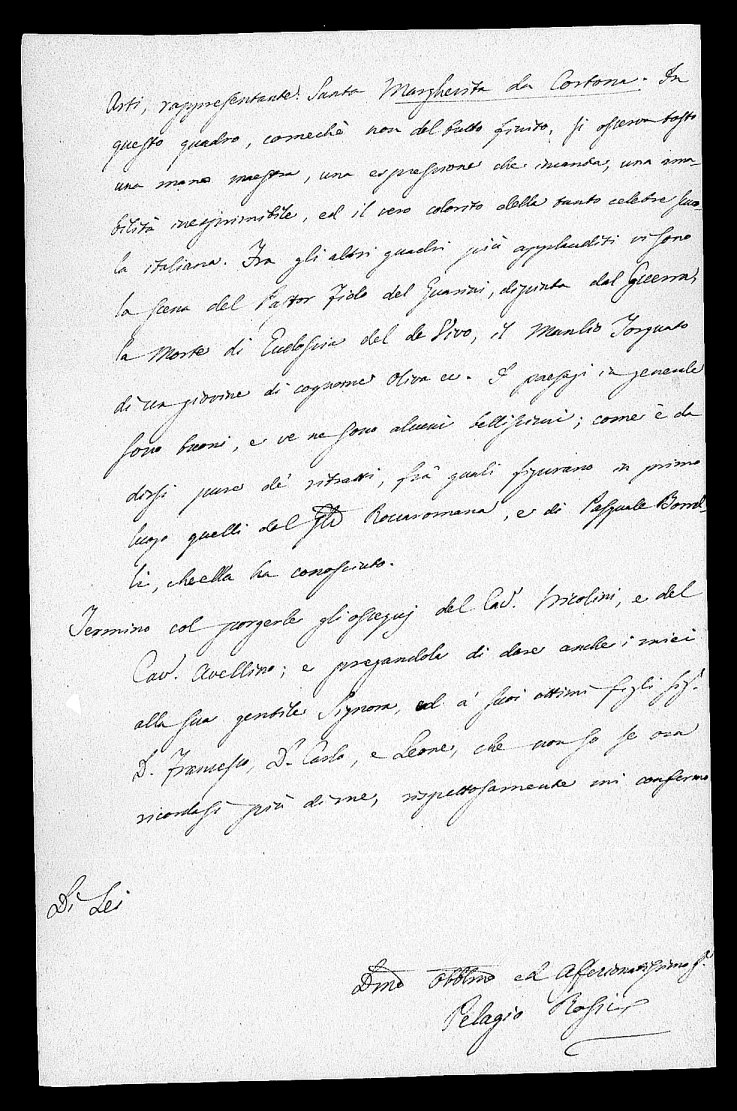 Arti, rappresentante Santa Margherita da Cortona. In
questo quadro, comechè non del tutto finito, si osserva tosto
una mano maestra, una espressione che incanta, una ama-
bilità inesprimibile, ed il vero colorito della tanto celebre scuo-
la italiana. Fra gli altri quadri più applauditi vi sono
la scena del Pastor Fido del Guarini, dipinta dal Guerra,
la Morte di Eudossia del de Vivo, il Manlio Torquato
di un giovine di cognome Oliva ec. I paesaggi in generale
sono buoni, e ve ne sono alcuni bellissimi; come è da
dirsi pure de' ritratti, fra' quali figurano in primo
luogo quelli del Roccaromana, e di Pasquale Borrel-
li, ch'ella ha conosciuto.
Termino col porgerle gli ossequj del Cav. Nicolini, e del
Cav. Avellino; e pregandola di dare anche i miei
alla sua gentile Signora, ed a' suoi ottimi figli Sig.
D. Francesco, D. Carlo, e Leone, che non so se ora
ricordasi più di me, rispettosamente mi confermo
Di Lei
Dmo Obblmo ed Affezionatissimo S.
Pelagio Rossi